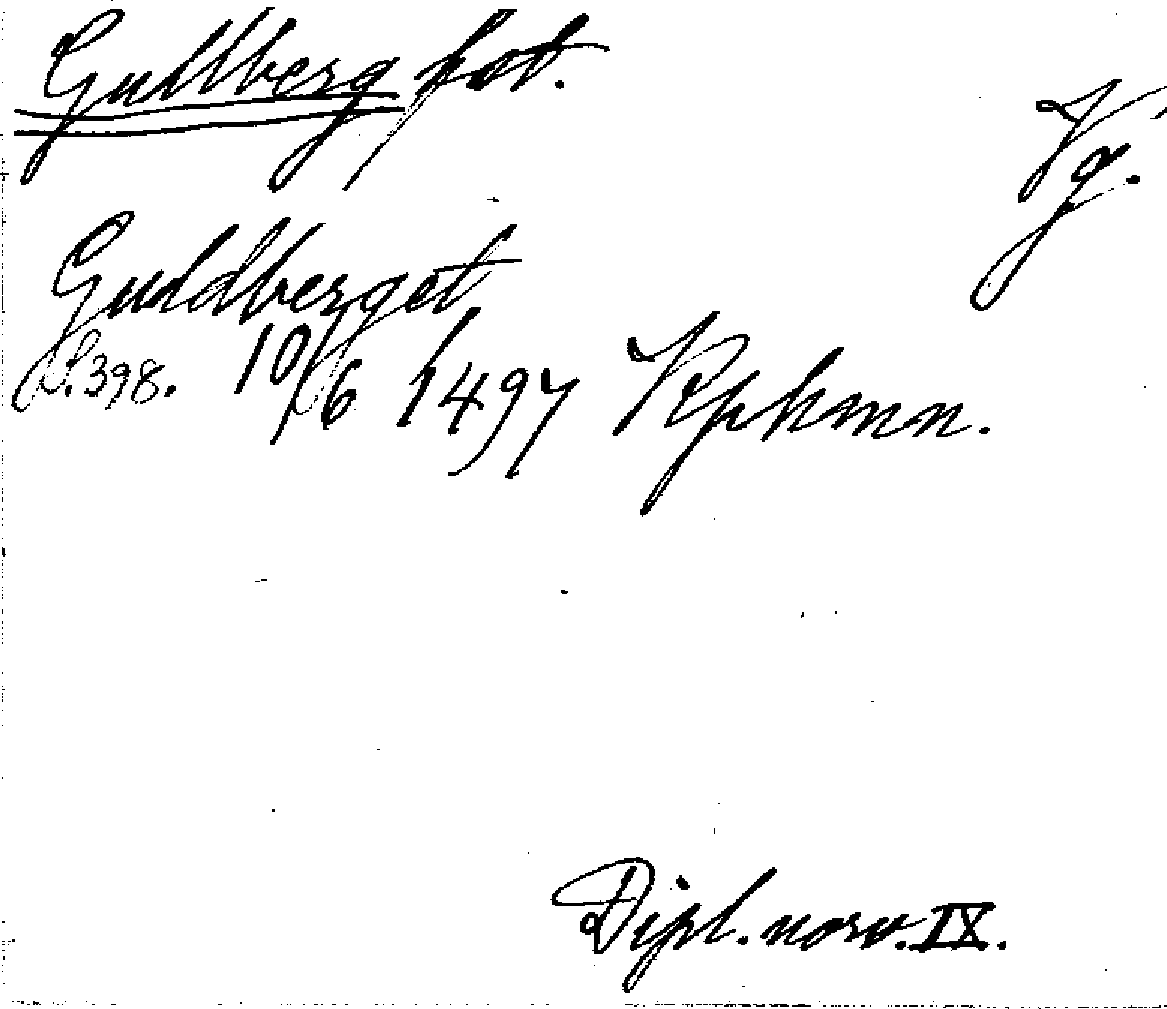 Gullberg fot.
Vg.
Guldberget
S. 398. 10/6 1497 Rphmn.
Dipl. norv. IX.